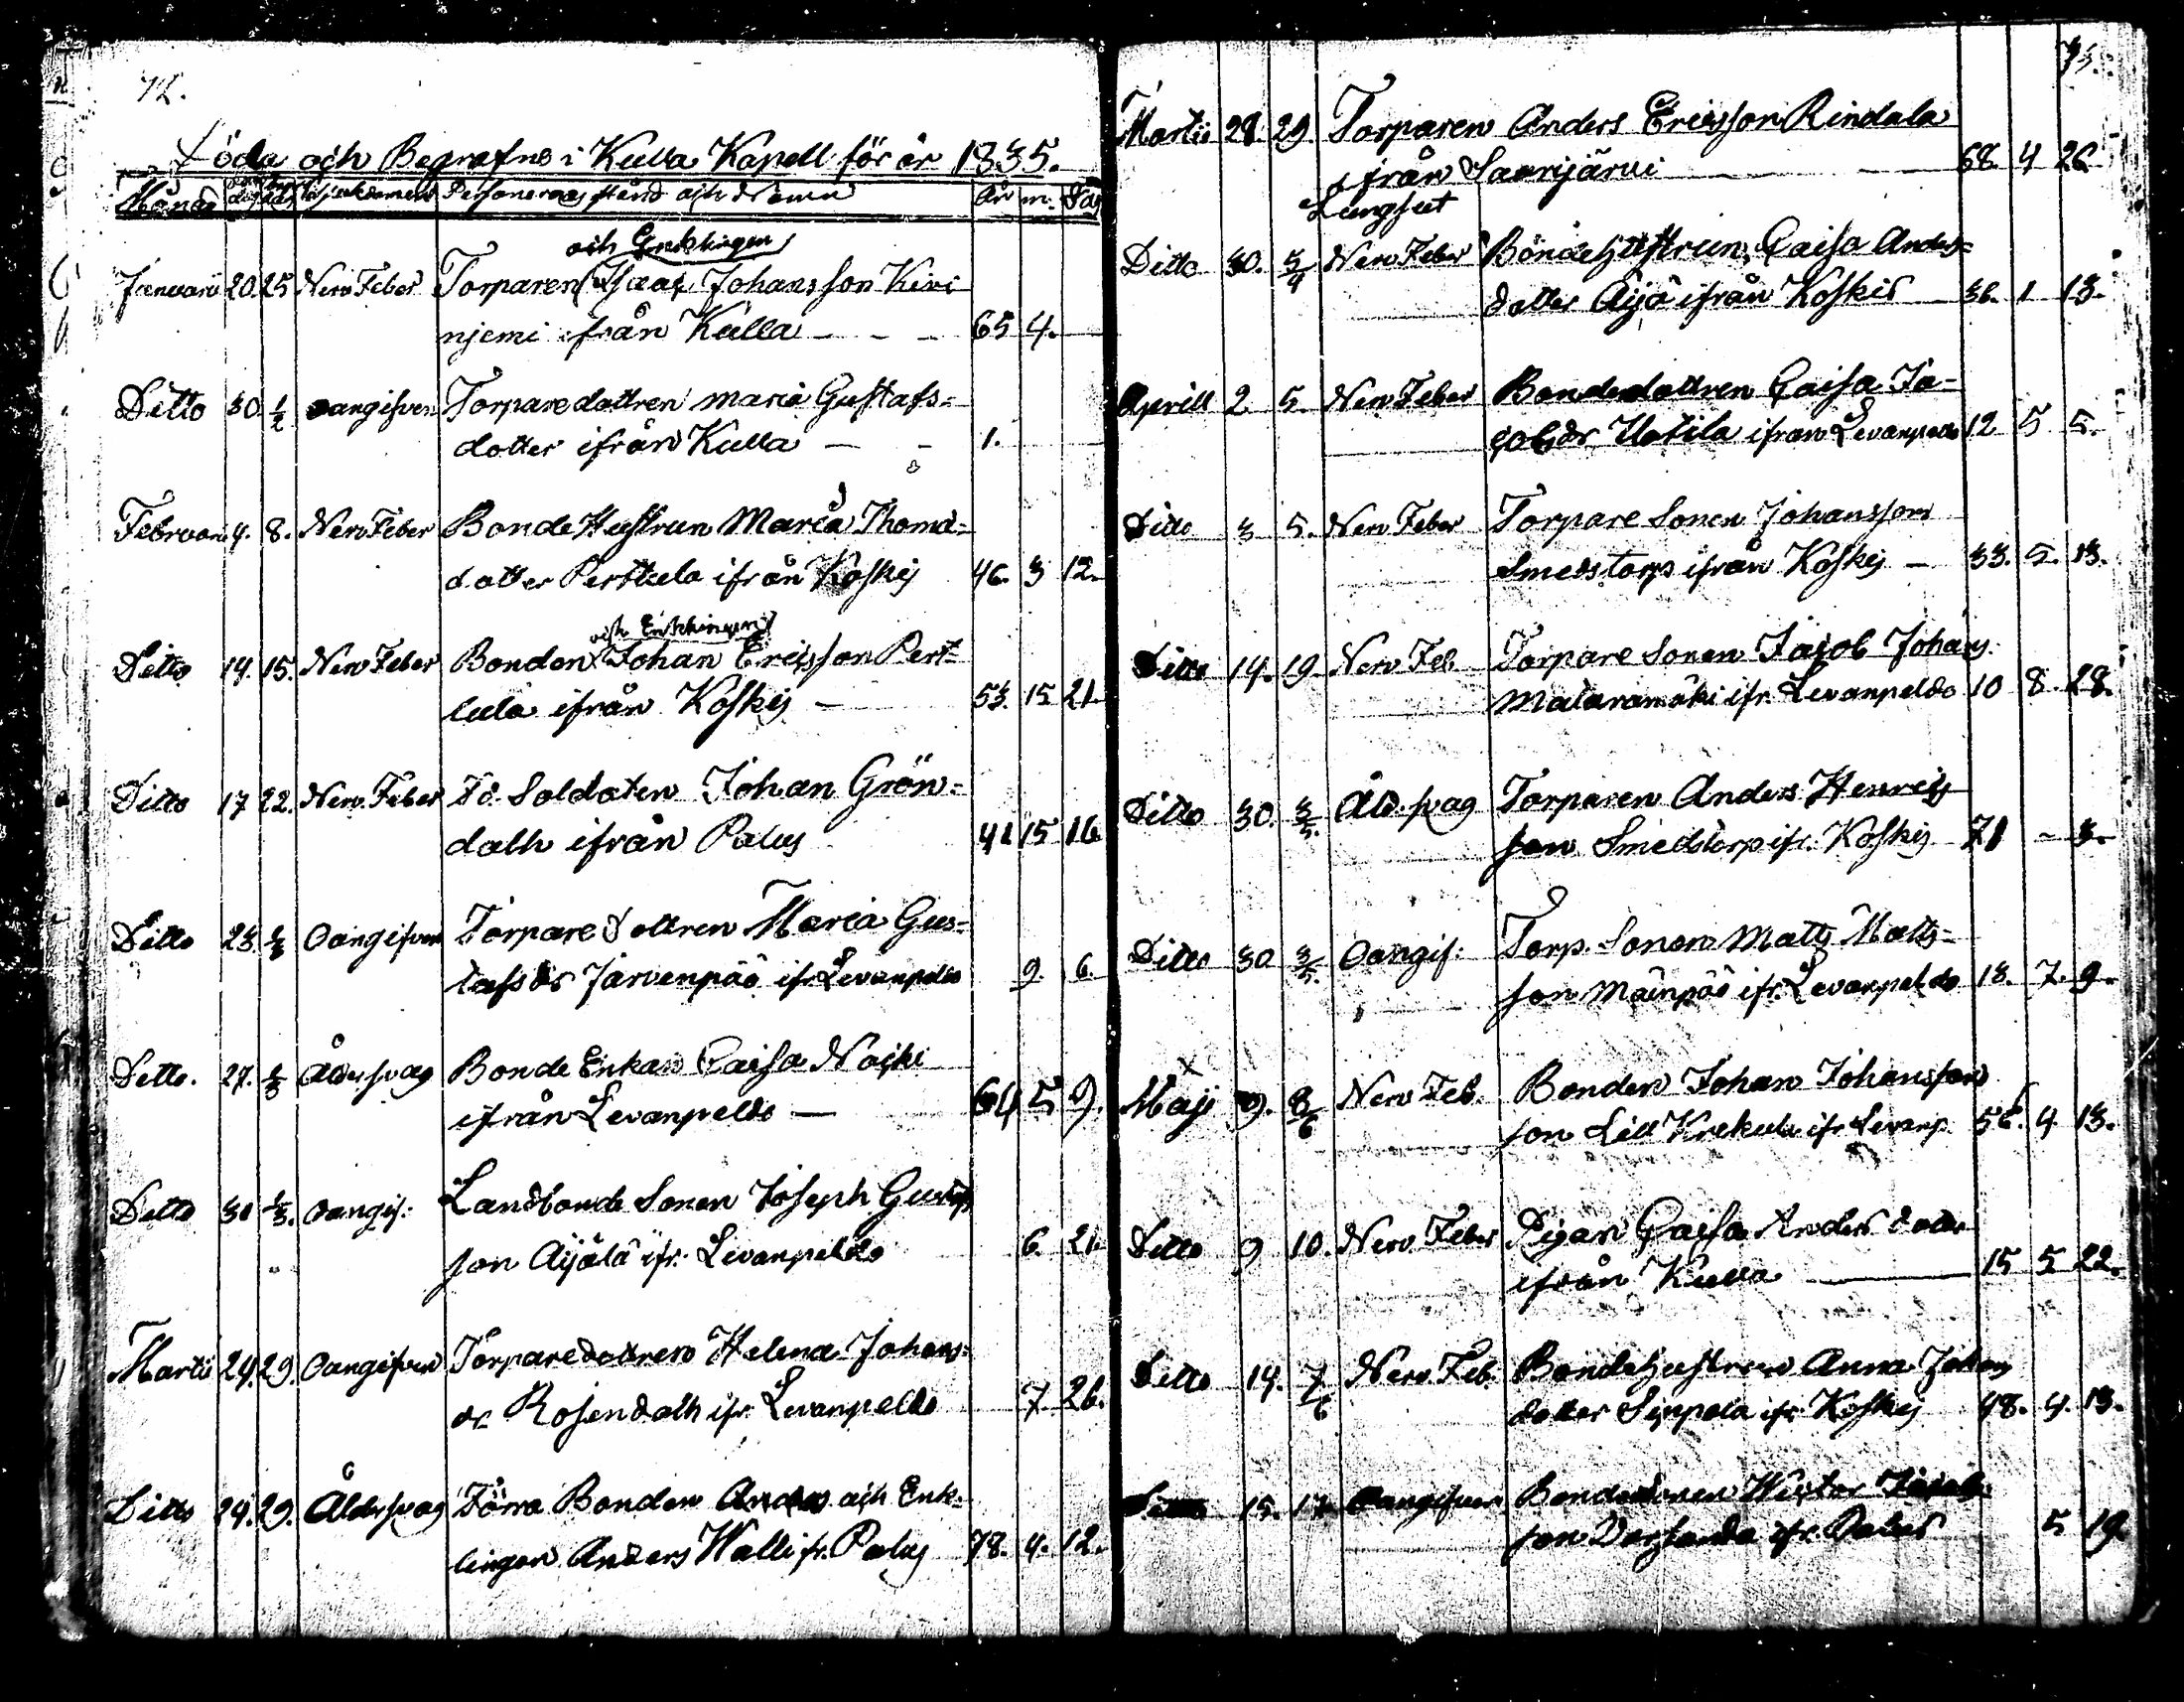 72.
Döda och Begrafne i Kulla Kapell för år 1835.
Månad Sjukdomens Personernas stånd och Namn År m. Dag
och Enklingen
Januarii 20. 25 Nerv Feber Torparen Isaac Johansson Kivi
njemi ifrån Kulla — - - 65 4.
Ditto 30. 1/2 oangifven Torpare dottren Maria Gustafs=
dotter ifrån Kulla — - 1.
Februari 4. 8. Nerv Feber Bonde Hustrun Maria Thoms=
dotter Perttula ifrån Koskis 46. 3 12.
och Enklingen
Ditto 14. 15. Nerv Feber Bonden Johan Ericsson Pert=
tula ifrån Koskis — 53. 15 21.
Ditto 17 22. Nerv. Feber Fd. Soldaten Johan Grön=
dalh ifrån Palus 41 15 16
Ditto 23. Oangifven Torpare dottren Maria Gus=
tafsdr Järvenpää ifr. Levanpeldo 9. 6.
Ditto. 27. 1/3 Ålders svag Bonde Enkan Caisa Noiki
ifrån Levanpeldo — 64 5 9.
Ditto 30 1/3. oangif: Landbonde Sonen Joseph Gustafs
son Äijälä ifr. Levanpeldo 6. 21.
Martii 24. 29. Oangifven Torparedottren Helena Johans=
dr Rosendalh ifr. Levanpeldo 7. 26.
Ditto 24. 29. Ålders svag Förra Bonden och Enk=
lingen Anders Walli fr. Palus 78. 4. 12.
73.
Martii 28. 29. Torparen Anders Ericsson Rindala
ifrån Saarijärvi — — 68. 4 26.
Lungsot
Ditto 30. 5/4 Nerv Feber Bonde hustrun, Caisa Anders=
dotter Äijä ifrån Koskis — 36. 1 13.
Aprill 2. 5. Nerv Feber Bondedottren Caisa Ja=
cobsdr Uotila ifrån Levanpeldo 12 5 5.
Ditto 3 5. Nerv Feber Torpare Sonen Johansson
Smedstorp ifrån Koskis — 33. 5. 13.
Ditto 14. 19. Nerv Feb. Torpare Sonen Jacob Johans.
Malaramäki ifr. Levanpeldo 10 8. 28.
Ditto 30. 3/5. Åld. svag Torparen Anders Henrics
son Smedstorp ifr. Koskis 71 - 3.
Ditto 30 3/5. Oangif: Torp. Sonen Matts Matts=
son Mäinpää ifr. Levanpeldo 18. 7. 9.
Maji 9. 8/6 Nerv Feb. Bonden Johan Johansson
son Lill Krekula ifr Levanp. 56. 4. 13.
Ditto 9 10. Nerv Feber Pigan Caisa Anders dotter
ifrån Kulla — 15 5 22.
Ditto 14. 7/6 Nerv. Feb. Bonde hustrun Anna Johans
dotter Seppälä ifr. Koskis 48. 4. 13.
Ditto 15. 17. Oangifven Bondesonen Wictor Jacobs
son ifr. Palus 5 19